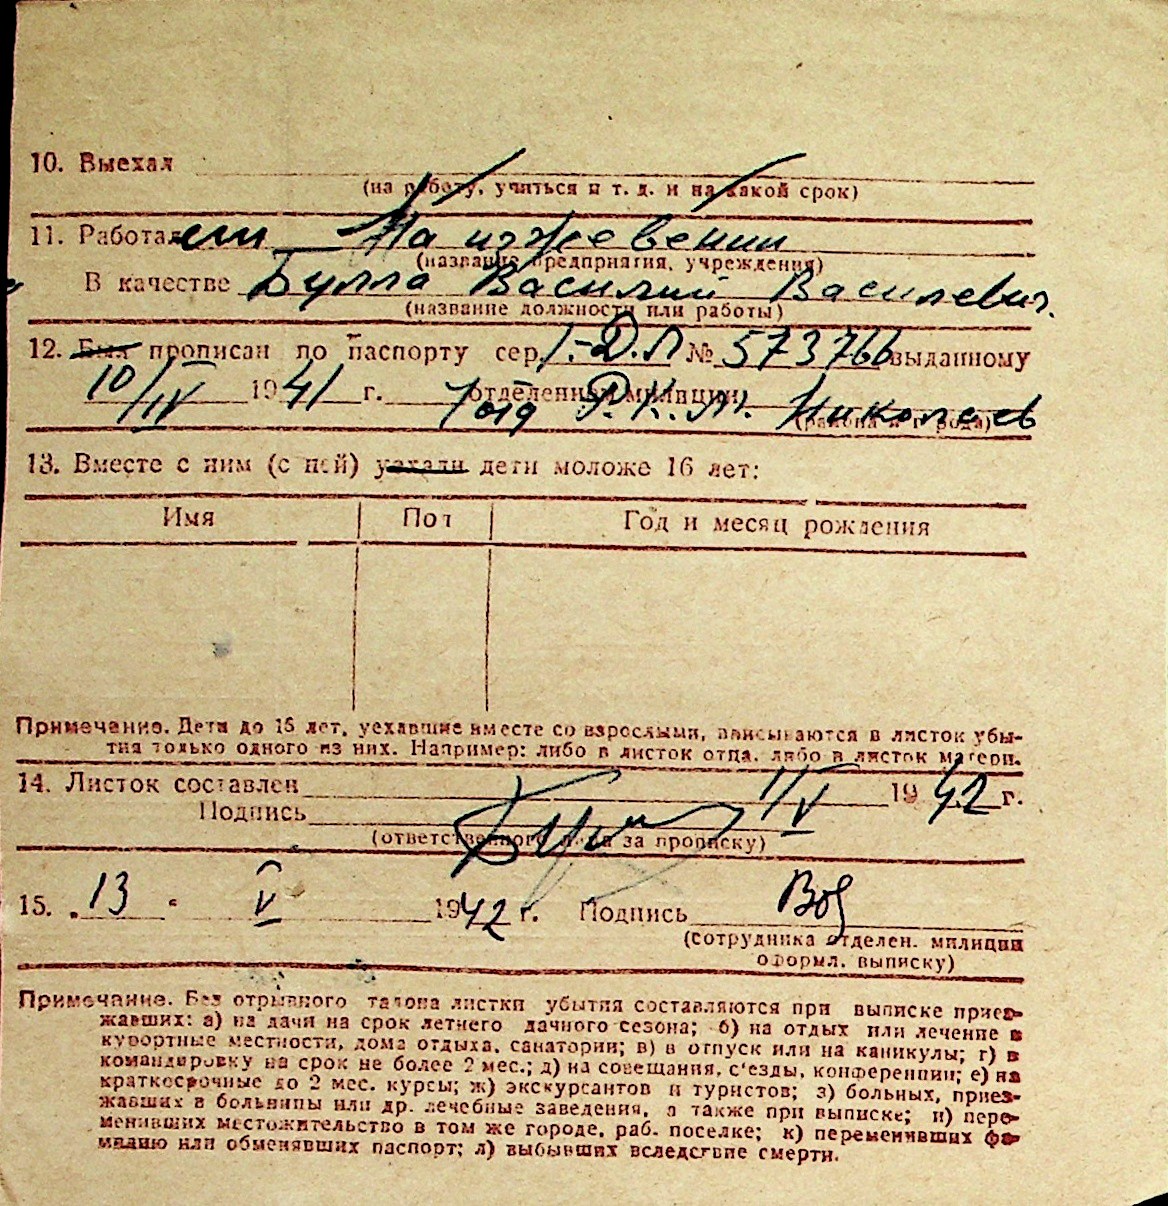 10. Выехал
(на работу, учиться и т. д. и на какой срок)
11. Работает На иждевении
(название предприятия, учреждения)
В качестве Булла Василий Василевич.
(название должности или работы)
12. Был прописан по паспорту сер. I-ДЛ № 573766 выданному
10/IV 1941 г. отделением милиции Р.К.М. Николаев
(района и города)
13. Вместе с ним (с ней) уехали дети моложе 16 лет:
Имя Пол Год и месяц рождения
Примечание. Дети до 16 лет, уехавшие вместе со взрослыми, вписываются в листок убы-
тия только одного из них. Например: либо в листок отца, либо в листок матери.
14. Листок составлен 11/V 1942 г.
Подпись
(ответственного лица за прописку)
15. 13 V 1942 г. Подпись
(сотрудника отделен. милиции
оформл. выписку)
Примечание. Без отрывного талона листки убытия составляются при выписке приез-
жавших: а) на дачи на срок летнего дачного сезона; б) на отдых или лечение в
курортные местности, дома отдыха, санатории; в) в отпуск или на каникулы; г) в
командировку на срок не более 2 мес.; д) на совещания, с'езды, конференции; е) на
краткосрочные до 2 мес. курсы; ж) экскурсантов и туристов; з) больных, приез-
жавших в больницы или др. лечебные заведения, а также при выписке; и) пере-
менивших местожительство в том же городе, раб. поселке; к) переменивших фа-
милию или обменявших паспорт; л) выбывших вследствие смерти.